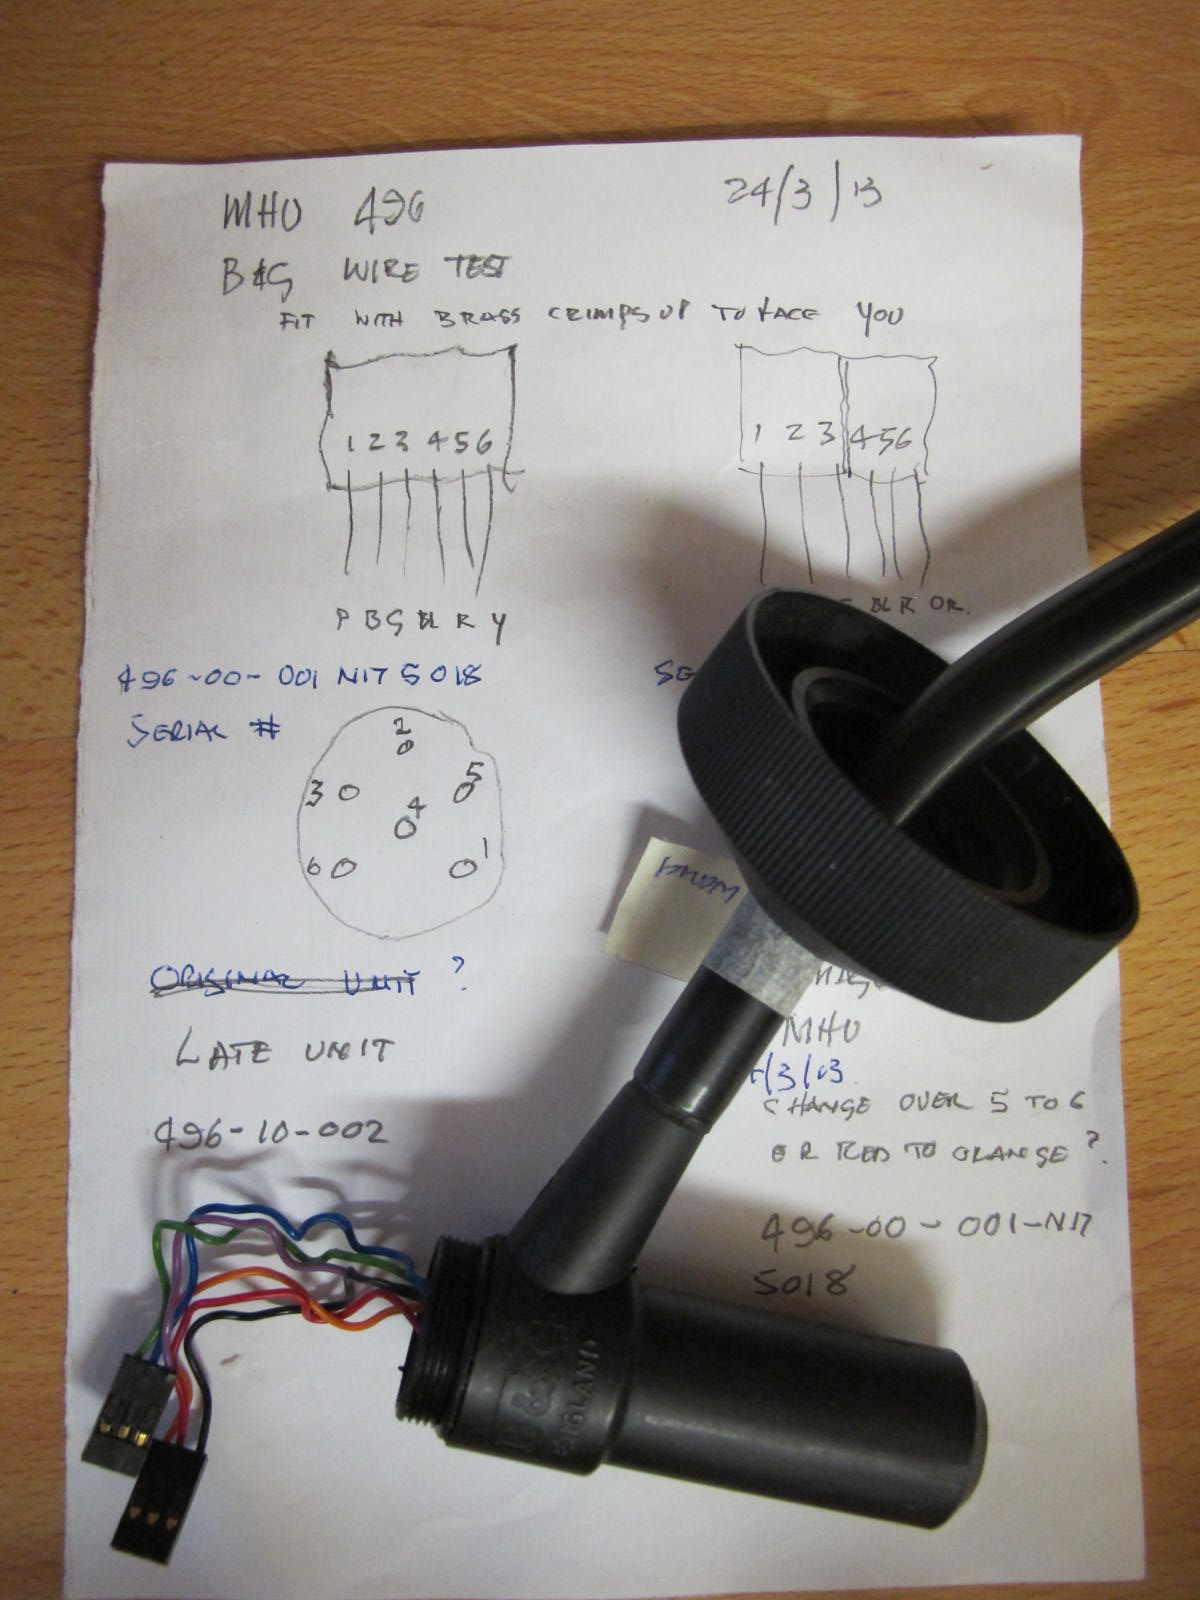 MHU 496
24/3/13
B&G WIRE TEST
FIT WITH BRASS CRIMPS UP TO FACE YOU
1 2 3 4 5 6
1 2 3 4 5 6
P B G BL R Y
BL R OR.
496-00-001 N17 5018
SERIAL #
2
3
5
4
6
1
ORIGINAL UNIT ?
LATE UNIT
496-10-002
MHU
/3/13.
CHANGE OVER 5 TO 6
OR RED TO ORANGE ?.
496-00-001-N17
5018
B&G
ENGLAND